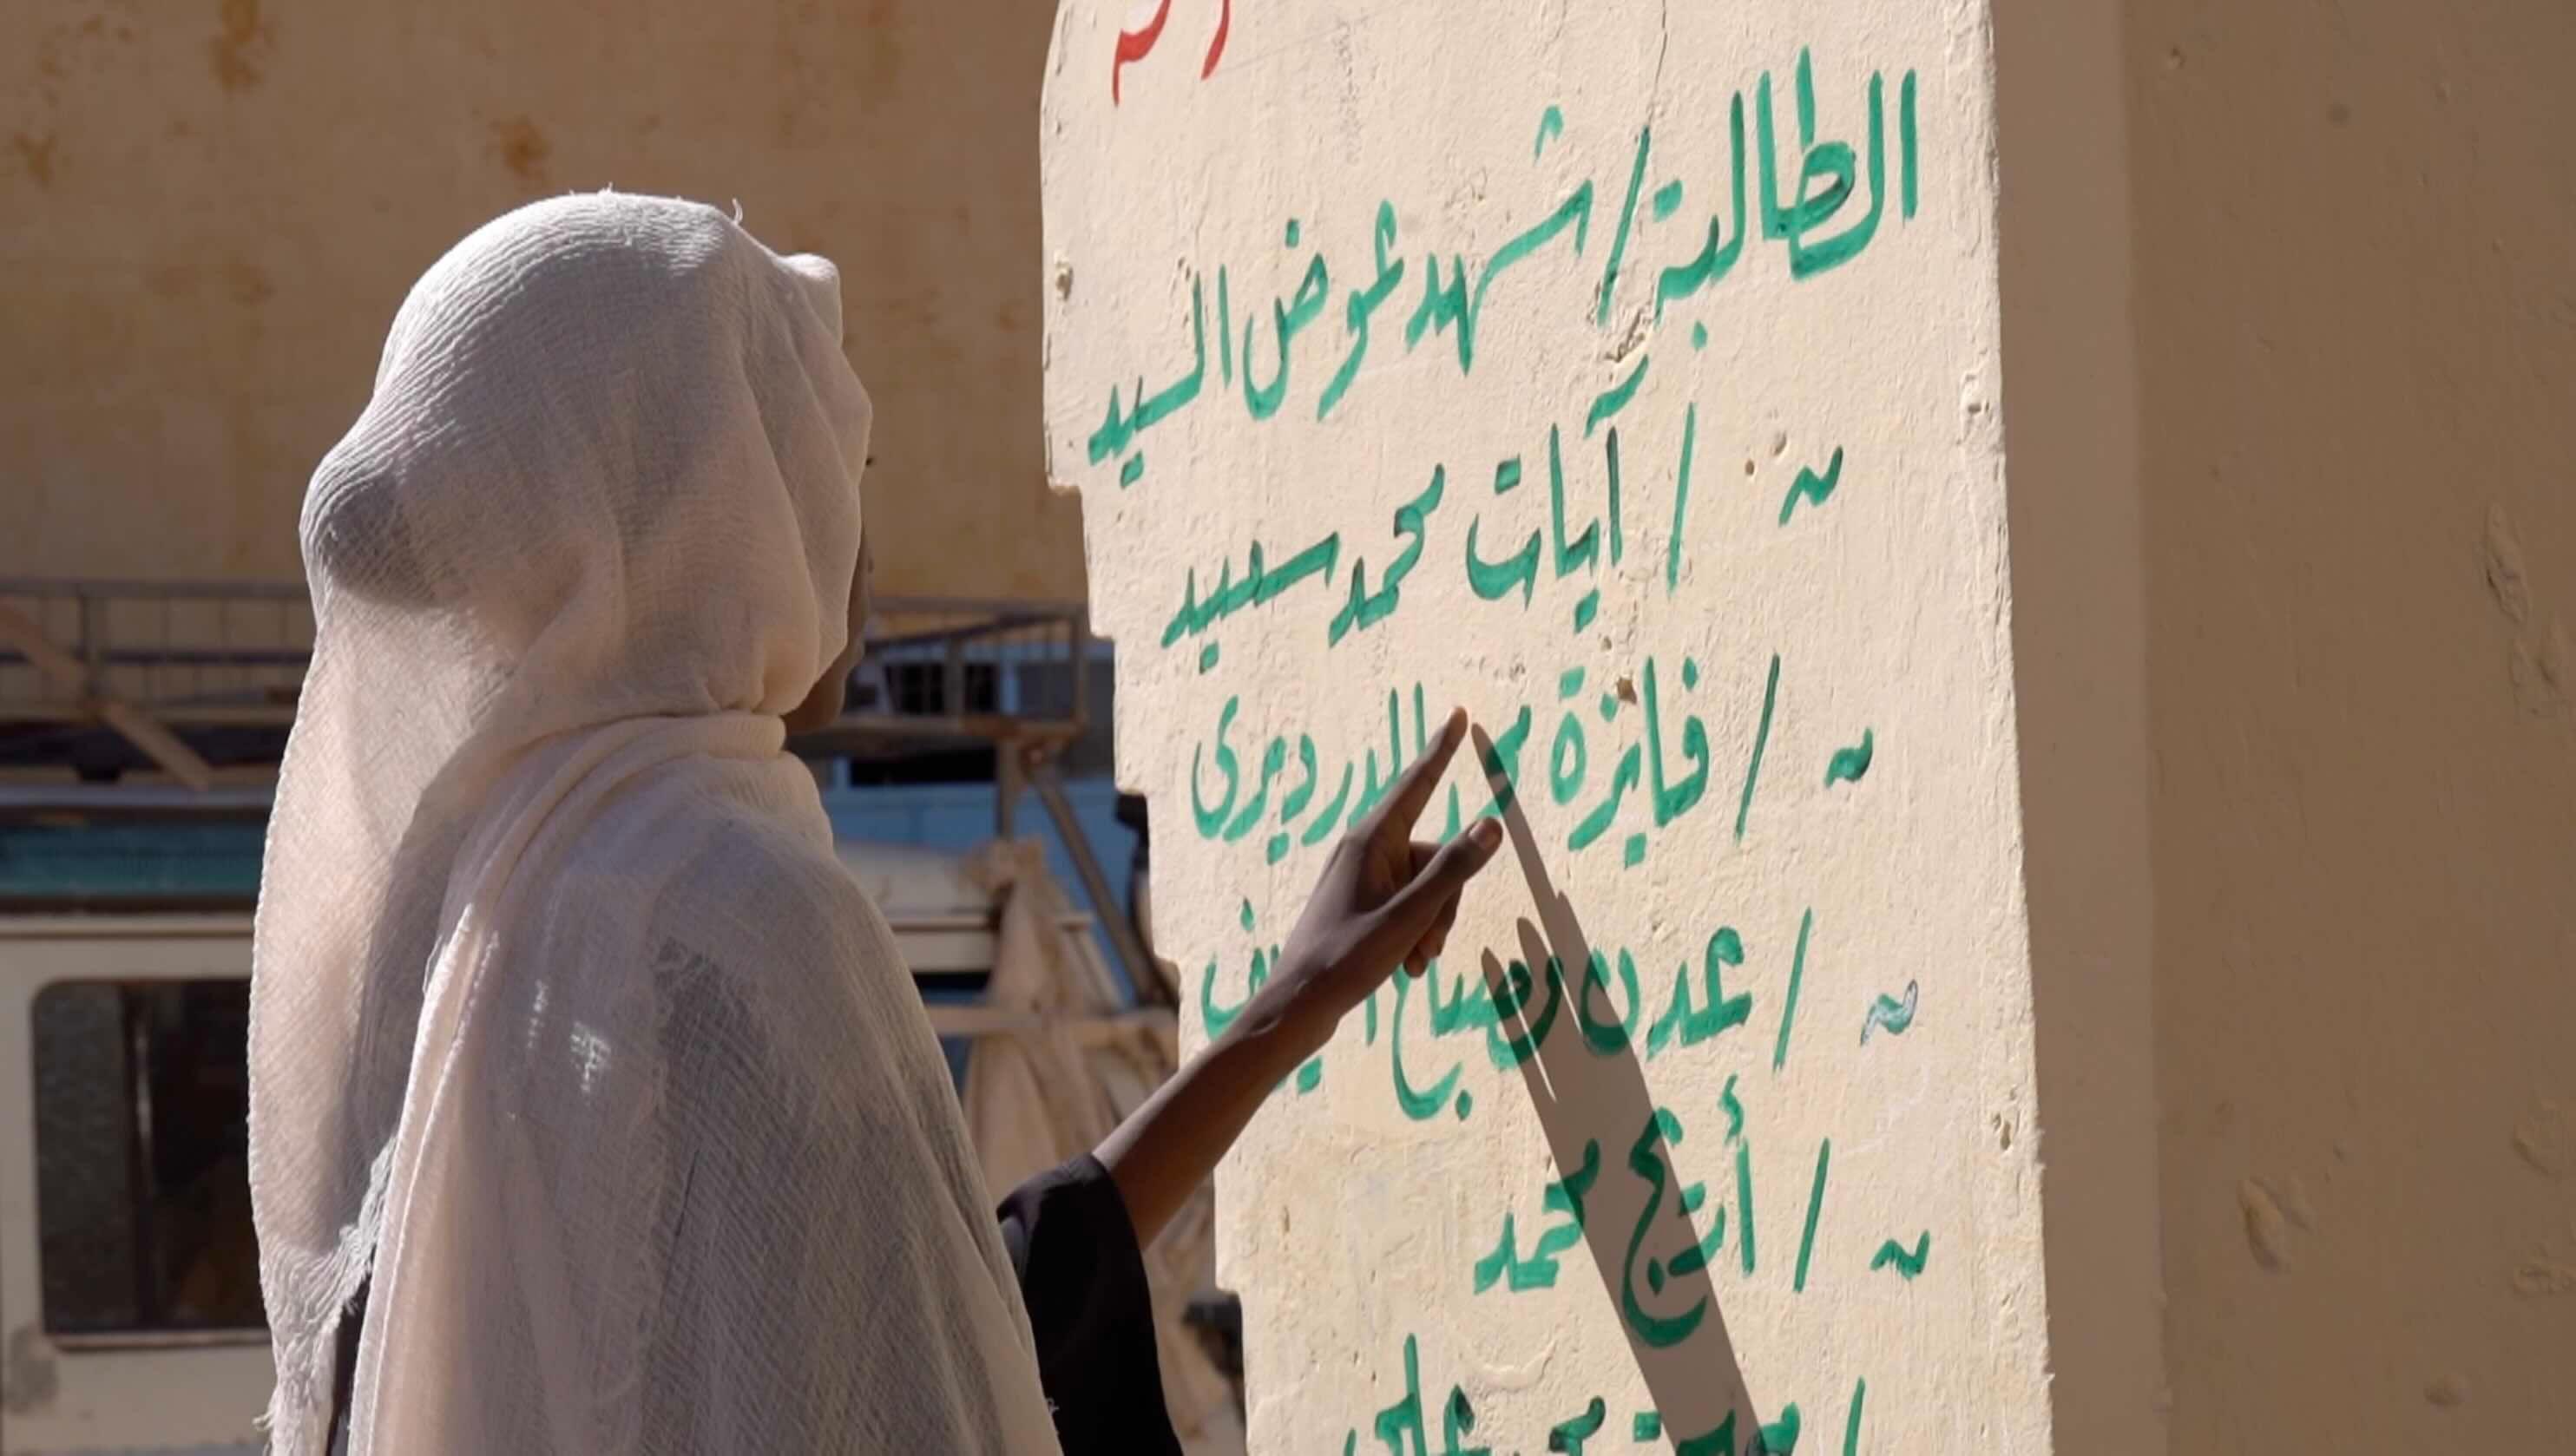 الطالبة / شهد عوض السيد
〃 / آيات محمد سعيد
〃 / فايزة الدرديرى
〃 / عدن مصباح
〃 / أريج محمد
/ محمد علي